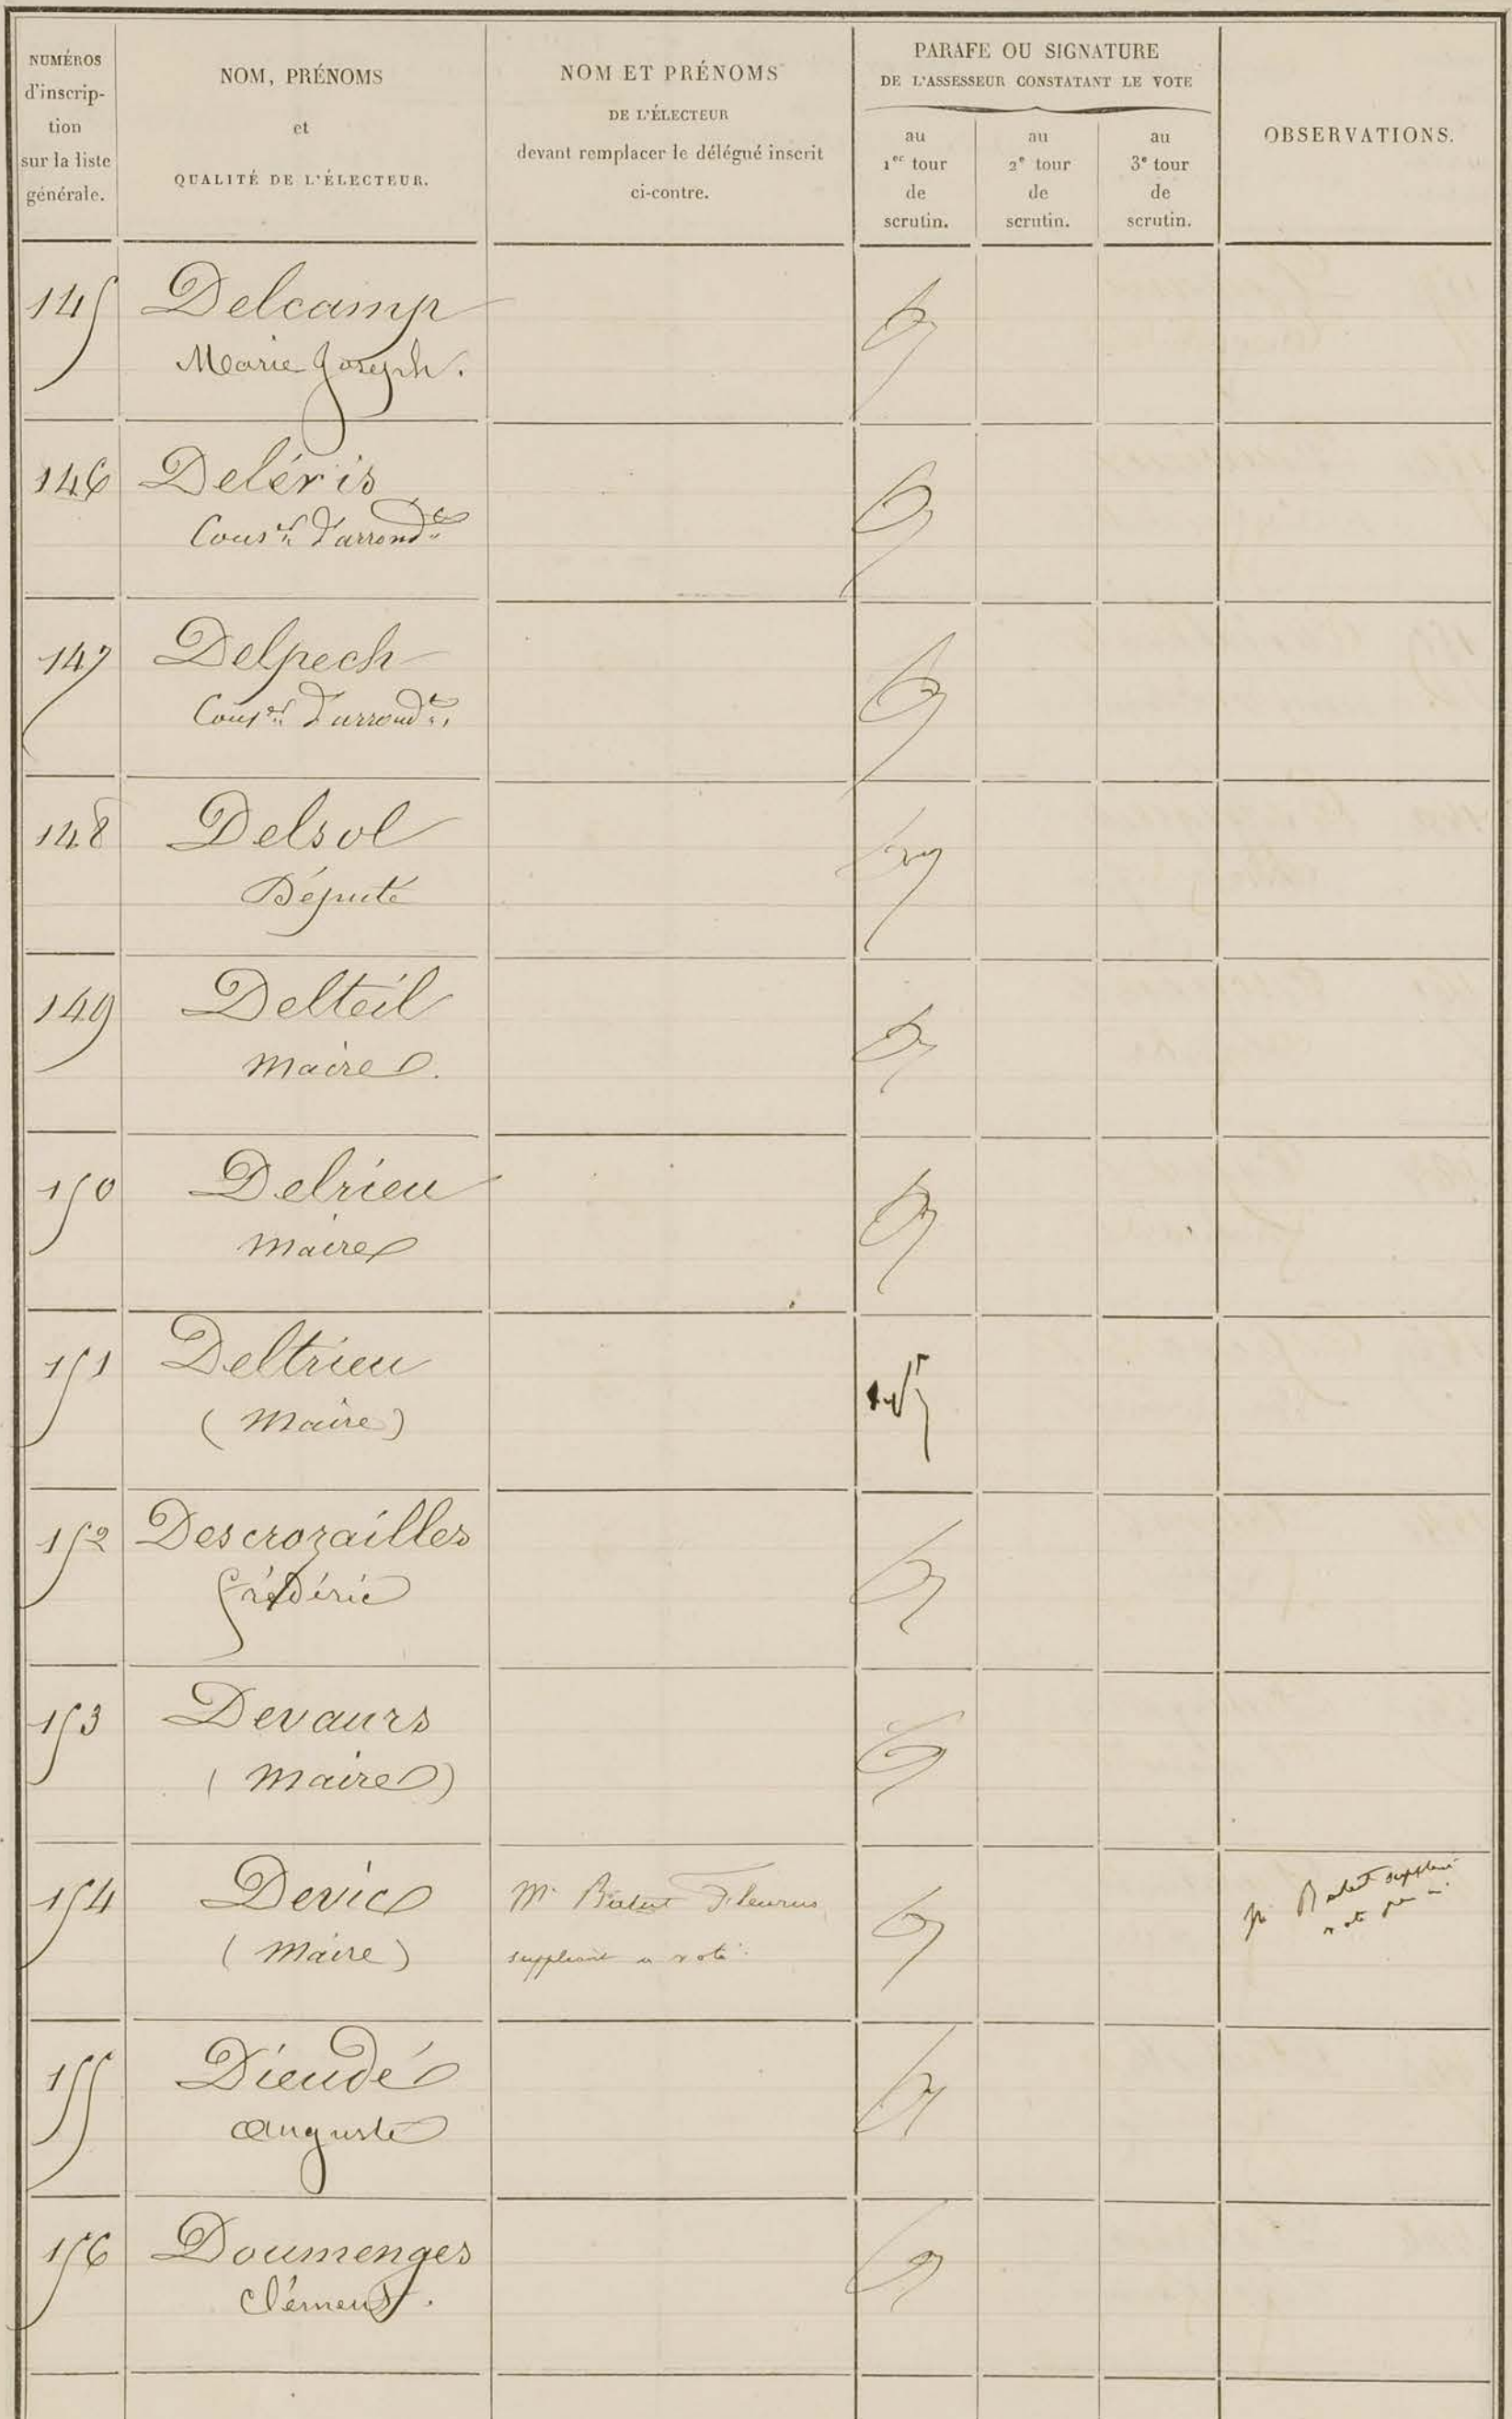 NUMÉROS
d'inscrip-
tion
sur la liste
générale.
NOM, PRÉNOMS
et
QUALITÉ DE L'ÉLECTEUR.
NOM ET PRÉNOMS
DE L'ÉLECTEUR
devant remplacer le délégué inscrit
ci-contre.
PARAFE OU SIGNATURE
DE L'ASSESSEUR CONSTATANT LE VOTE
au
1er tour
de
scrutin.
au
2e tour
de
scrutin.
au
3e tour
de
scrutin.
OBSERVATIONS.
145 Delcamp
Marie Joseph.
146 Deléris
Consr d'arrondt
147 Delpech
Consr d'arrondt
148 Delsol
Député
149 Delteil
Maire.
150 Delrieu
Maire
151 Deltrieu
(Maire)
152 Descrozailles
Frédéric
153 Devaurs
(Maire)
154 Devic Mr Balut Fleurus
(Maire) suppléant a voté
155 Dieudé
Auguste
156 Doumenges
Clément.